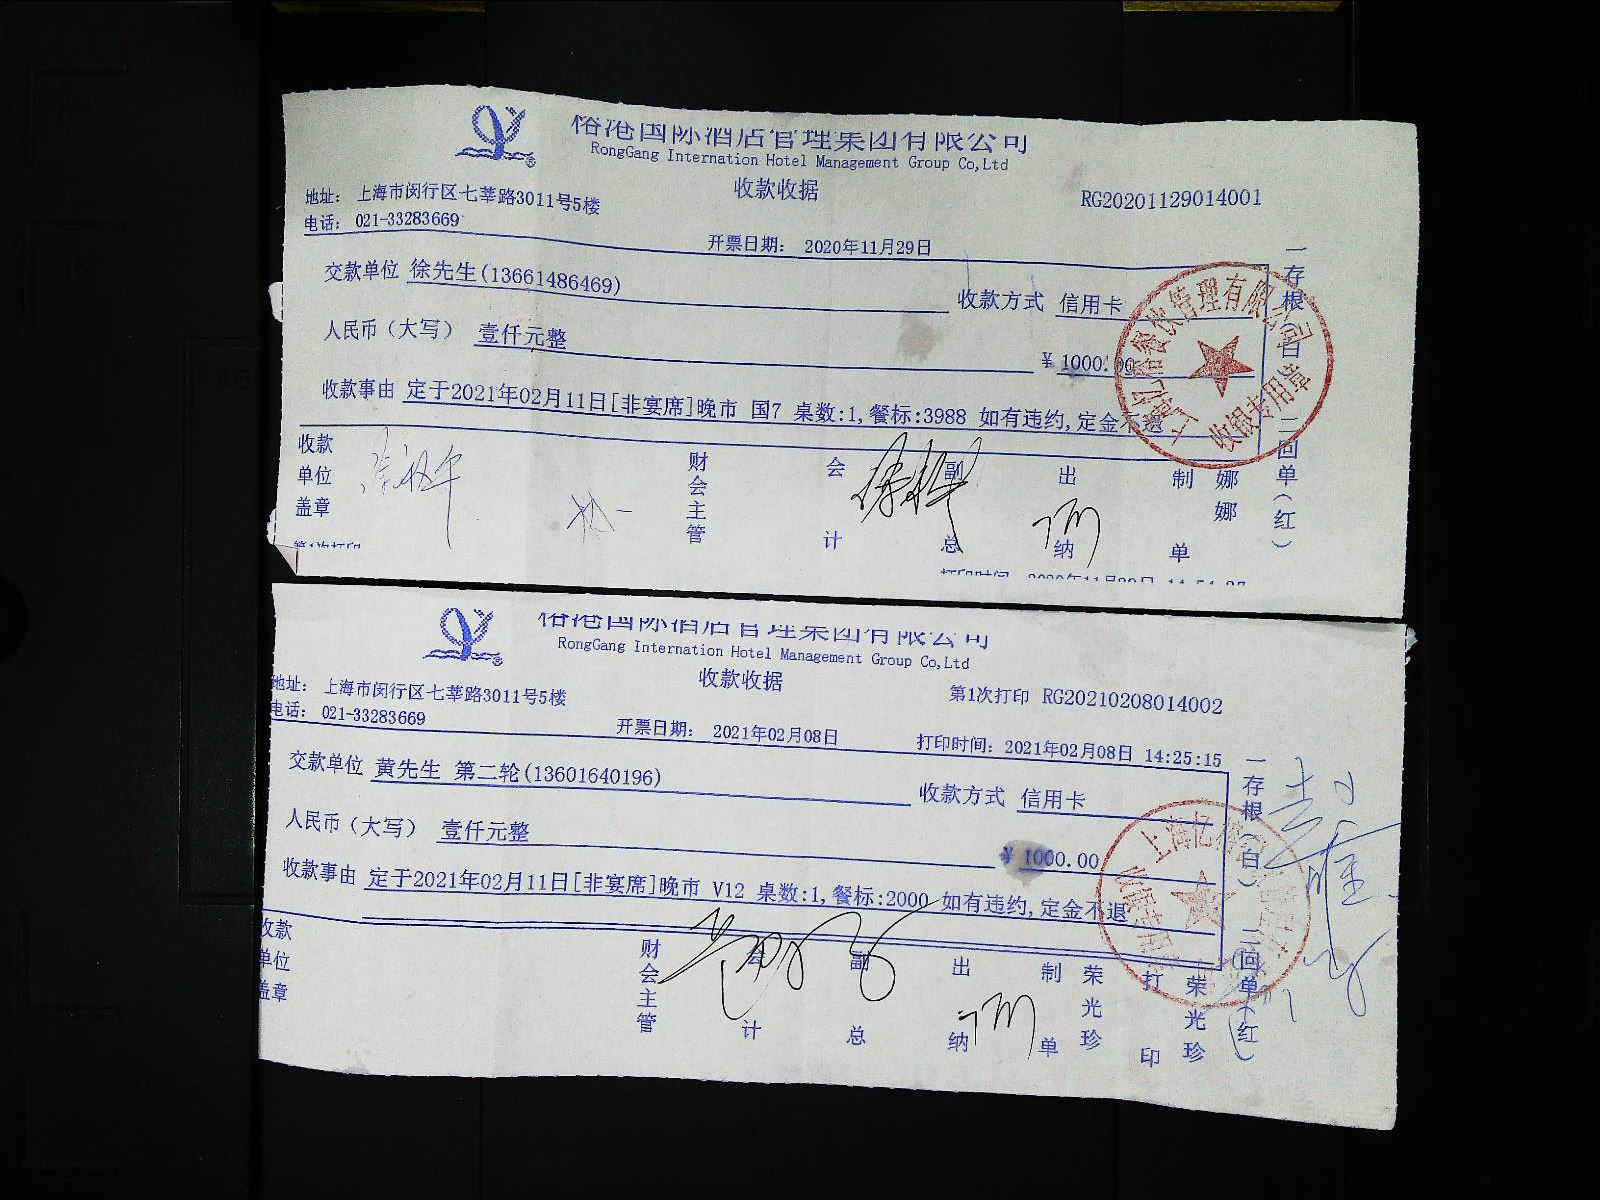 榕港国际酒店管理集团有限公司
RongGang Internation Hotel Management Group Co,Ltd
收款收据
RG20201129014001
地址： 上海市闵行区七莘路3011号5楼
电话： 021-33283669
开票日期： 2020年11月29日
交款单位 徐先生(13661486469)
收款方式 信用卡
人民币（大写） 壹仟元整
¥ 1000.00
收款事由 定于2021年02月11日[非宴席]晚市 国7 桌数:1,餐标:3988 如有违约,定金不退
收款单位盖章
财会主管
会计
副总
出纳
制单
娜娜
一存根(白) 二回单(红)
第1次打印
榕港国际酒店管理集团有限公司
RongGang Internation Hotel Management Group Co,Ltd
收款收据
第1次打印 RG20210208014002
地址： 上海市闵行区七莘路3011号5楼
电话： 021-33283669
开票日期： 2021年02月08日
打印时间：2021年02月08日 14:25:15
交款单位 黄先生 第二轮(13601640196)
收款方式 信用卡
人民币（大写） 壹仟元整
¥ 1000.00
收款事由 定于2021年02月11日[非宴席]晚市 V12 桌数:1,餐标:2000 如有违约,定金不退
收款单位盖章
财会主管
会计
副总
出纳
制单
荣光珍
打印
荣光珍
一存根(白) 二回单(红)